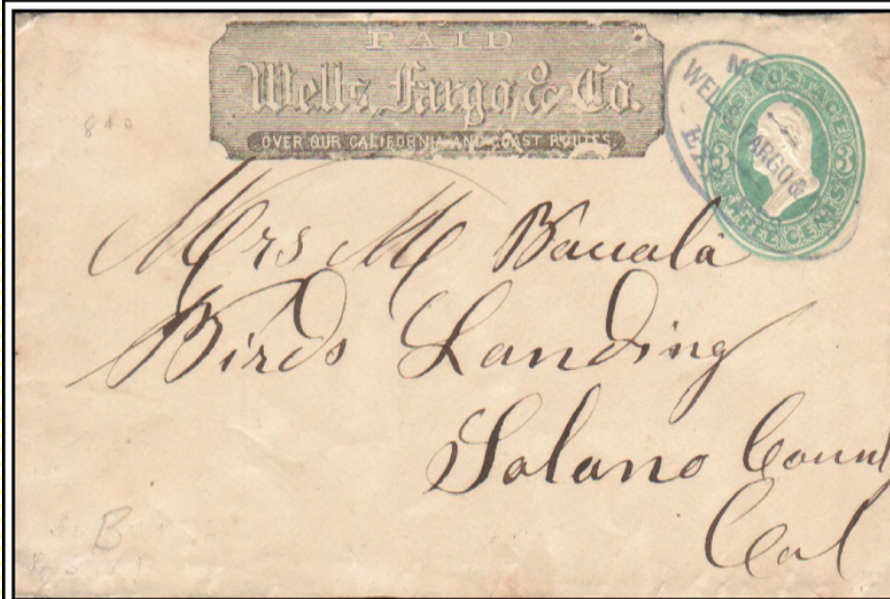 PAID
Wells, Fargo & Co.
OVER OUR CALIFORNIA AND COAST ROUTES.
WELLS FARGO &
EX
U.S. POSTAGE
3 3
THREE CENTS
840
Mrs M
Birds Landing
Solano Coun
Cal
B